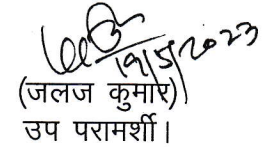 19/5/2023
(जलज कुमार)
उप परामर्शी।